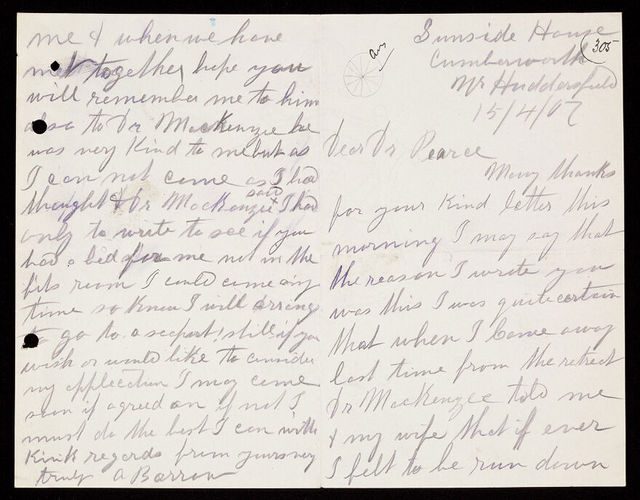 Sunside House
Cumberworth
Nr Huddersfield
15/4/07
305
ans
Dear Dr Pearce
Many thanks
for your Kind letter this
morning I may say that
the reason I wrote you
was this I was quite certain
that when I Came away
last time from the retreat
Dr MacKenzie told me
& my wife that if ever
I felt to be run down
me & when we have
met together hope you
will remember me to him
also to Dr MacKenzie he
was very Kind to me but as
I can not come as I had
thought & Dr MacKenzie said I had
only to write to see if you
had a bed for me not in the
fits room I could come any
time so Know I will arrange
to go to a seaport! still if you
wish or would like to consider
my application I may come
soon if agreed on If not I
must do the best I can with
Kink regards from yours very
truly A Barrow